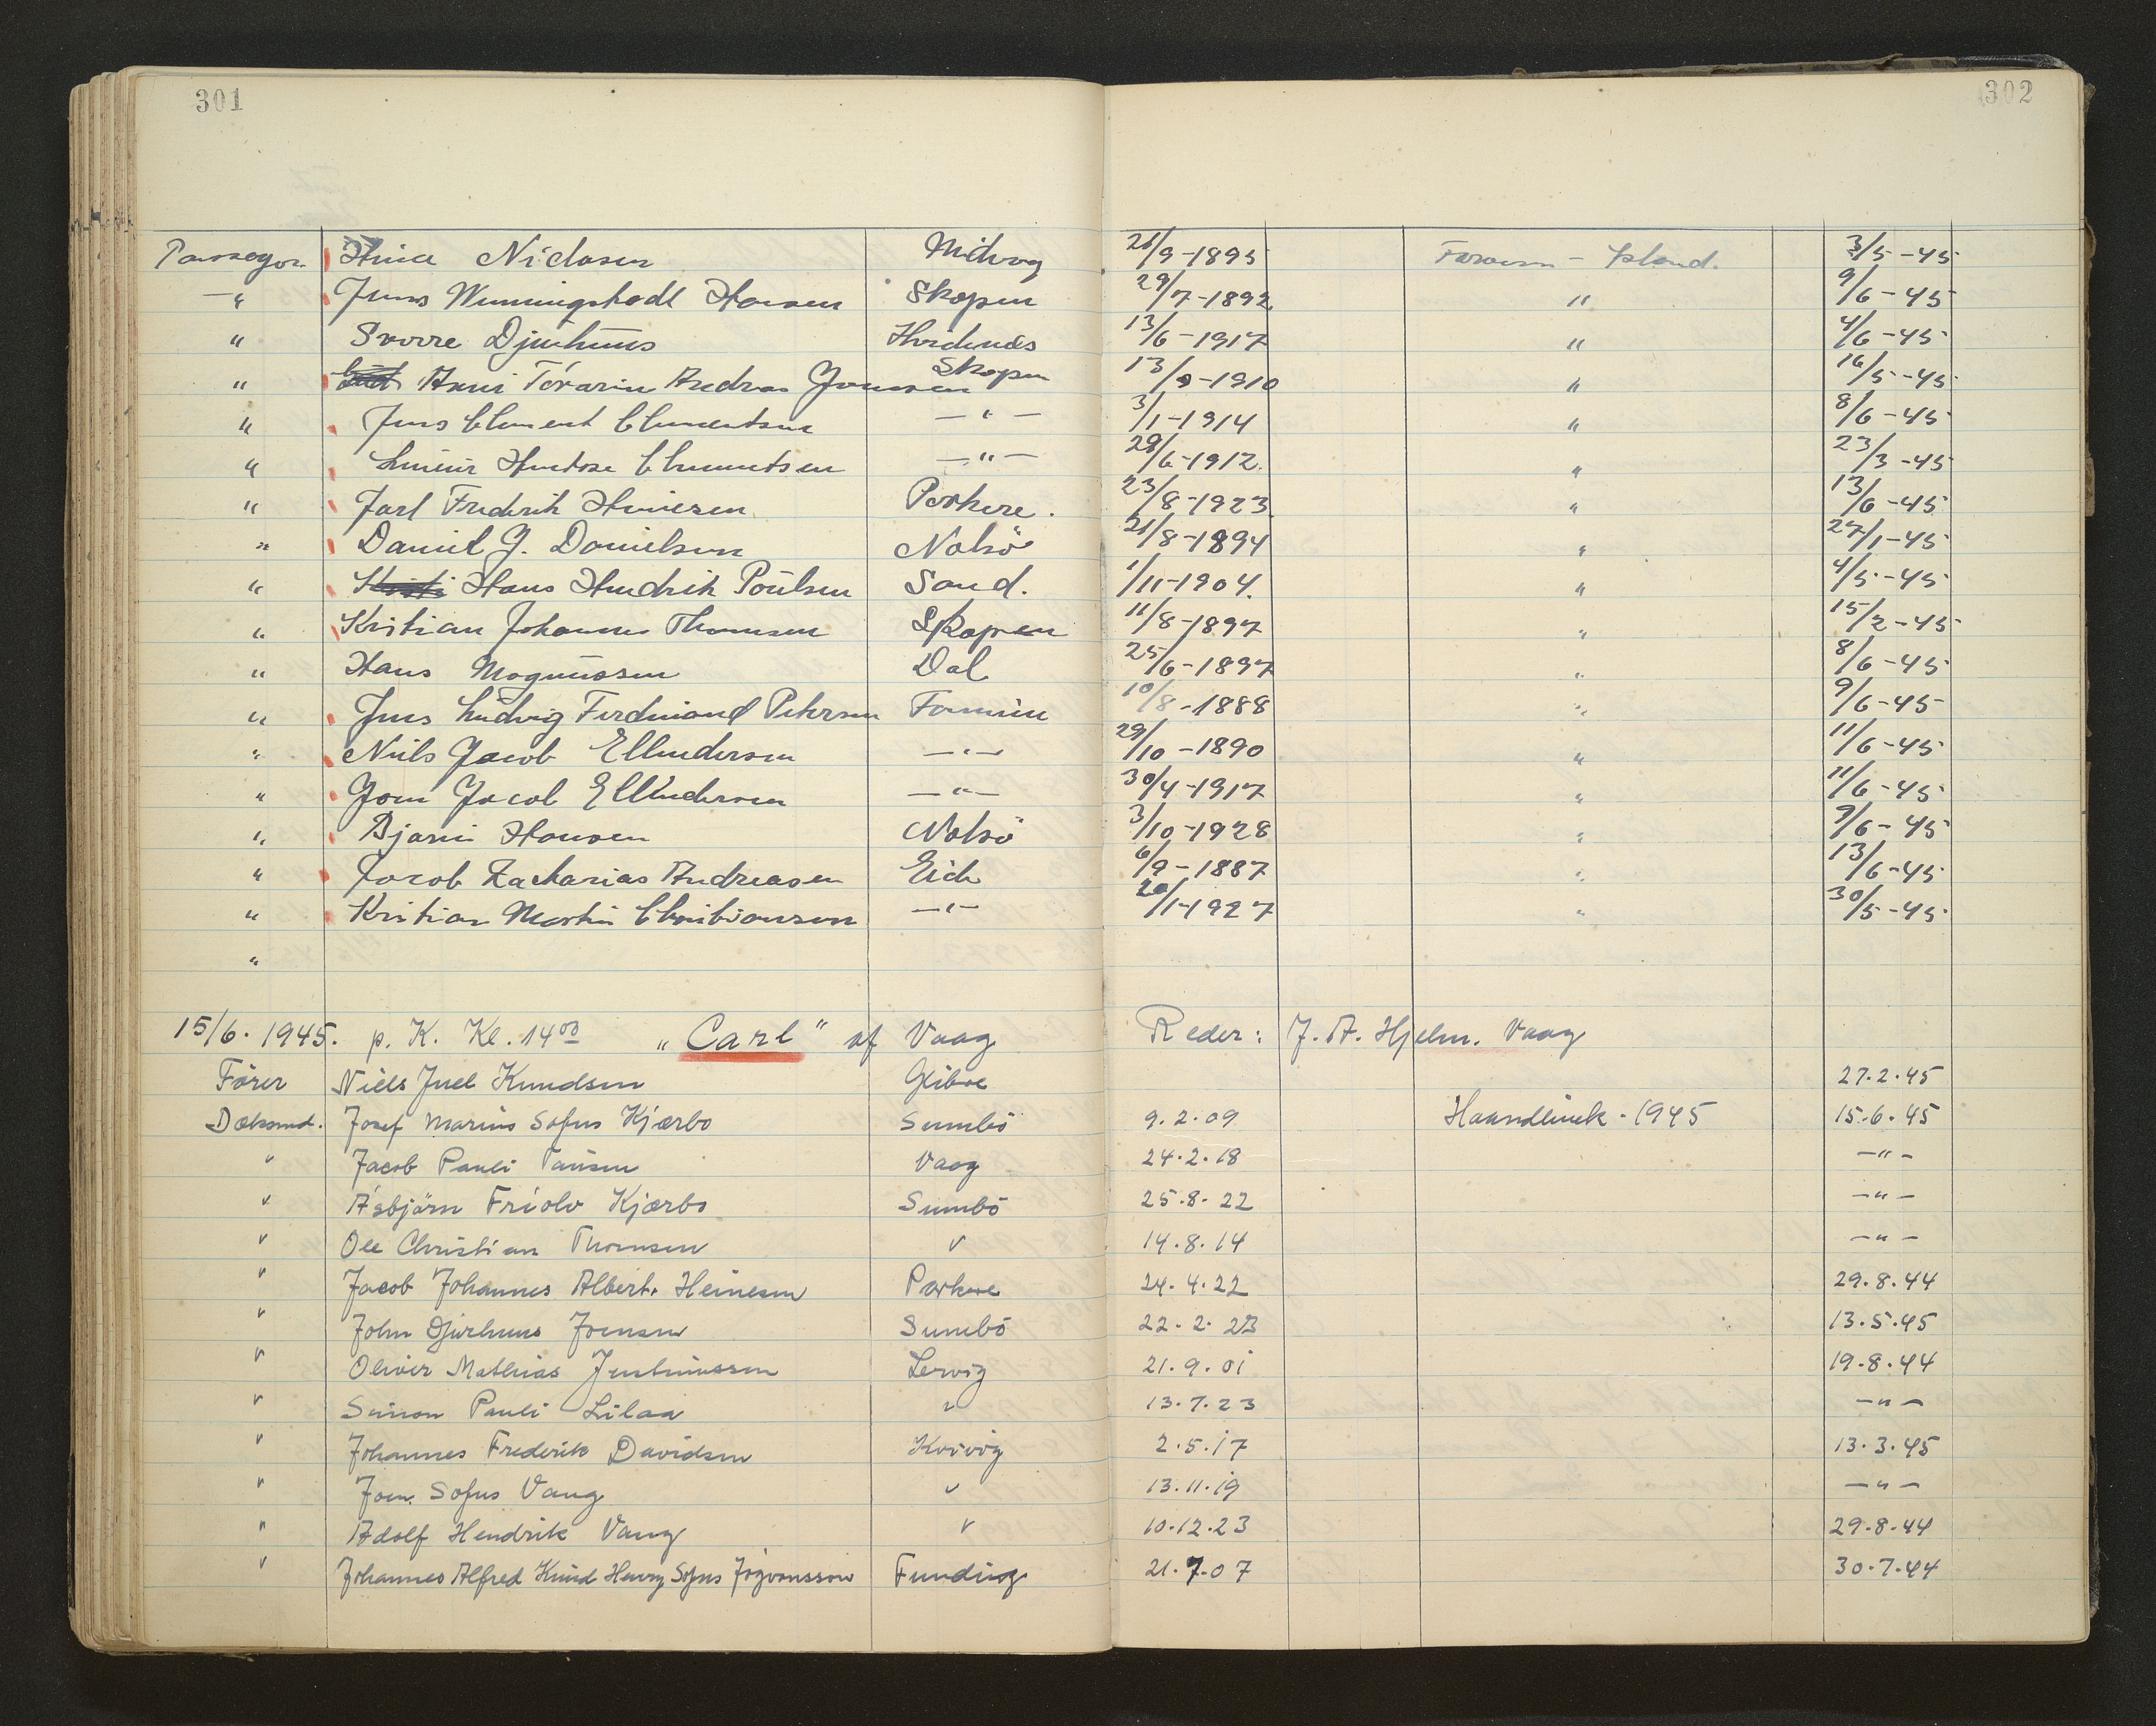 301
302
Passager Hina Niclasen Midvag 26/9-1895 Færøerne - Island. 3/5-45
—" Jens Wenningstedt Hansen Skopen 29/7-1892 " 9/6-45
" Sverre Djurhuus Hvidenæs 13/6-1917 " 4/6-45
" Anni Tórarin Andreas Joensen Skopen 13/9-1910 " 16/5-45
" Jens Clement Clementsen —"— 3/1-1914 " 8/6-45
" Clementsen —"— 28/6-1912. " 23/3-45
" Jarl Fredrik Heinesen Porkere. 23/8-1923 " 13/6-45
" Daniel J. Danielsen Nolsö 21/8-1894 " 27/1-45
" Hans Hendrik Poülsen Sand. 1/11-1904. " 4/5-45
" Kristian Johannes Thomsen Skopen 11/8-1897 " 15/2-45
" Hans Magnussen Dal 25/6-1897 " 8/6-45
" Jens Ludvig Ferdinand Petersen Famüin 10/8-1888 " 9/6-45
" Niels Jacob Ellendersen —"— 29/10-1890 " 11/6-45
" Joen Jacob Ellendersen —"— 30/4-1917 " 11/6-45
" Bjarni Hansen Nolsö 3/10-1928 " 9/6-45
" Jacob Zacharias Andreasen Eide 6/9-1887 " 13/6-45
" Kristian Martin Christiansen —"— 20/1-1927 " 30/5-45
"
15/6. 1945. p. K. Kl. 14 00 "Carl" af Vaag Reder: J. A. Hjelm. Vaag
Förer Niels Juel Knudsen Glibre 27.2.45
Dæksmd. Josef Marius Sofus Kjærbo Sumbö 9.2.09 Haandlinek - 1945 15.6.45
" Jacob Pauli Tausen Vaag 24.2.18 —"—
" Ásbjörn Fríolv Kjærbo Sumbö 25.8.22 —"—
" Ole Christian Thomsen " 14.8.14 —"—
" Jacob Johannes Albert. Heinesen Porkere 24.4.22 29.8.44
" John Djurhuus Joensen Sumbö 22.2.23 13.5.45
" Olivier Mathias Justinussen Lervig 21.9.01 19.8.44
" Simon Pauli Lilaa " 13.7.23 —"—
" Johannes Frederik Davidsen Kvivig 2.5.17 13.3.45
" Joen Sofus Vang " 13.11.19 —"—
" Adolf Hendrik Vang " 10.12.23 29.8.44
" Johannes Alfred Knud Henry Sofus Jógvansson Funding 21.7.07 30.7.44